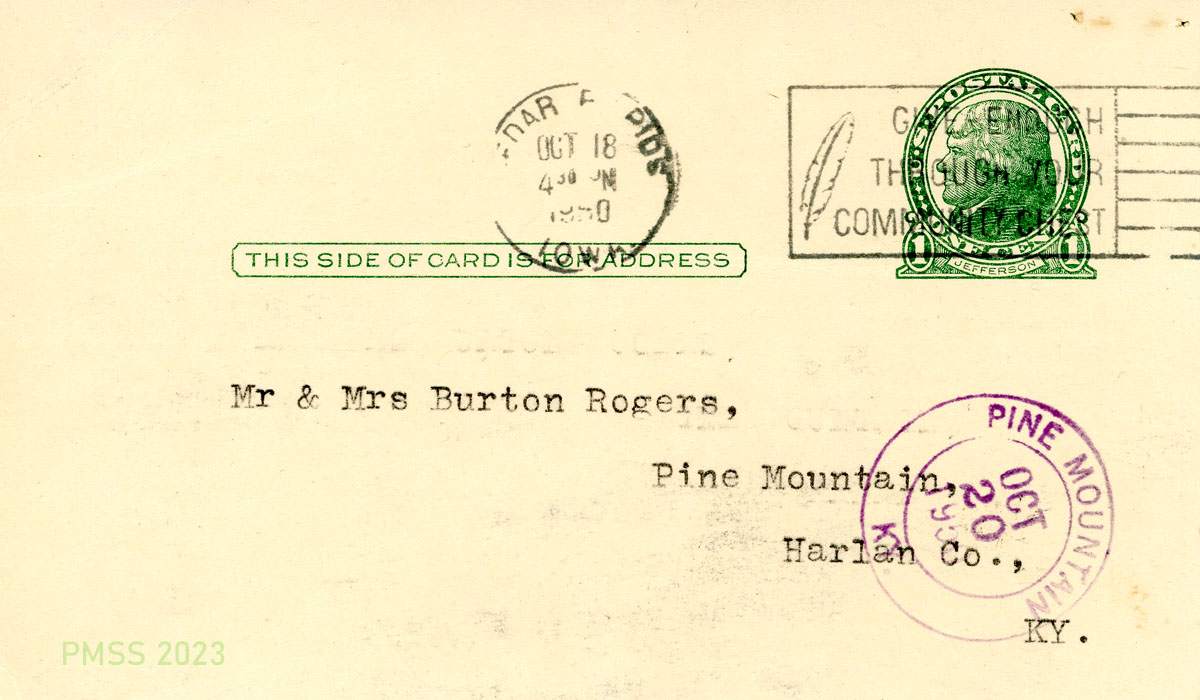 OCT 18
4 30 PM
1950
IOWA
GIVE ENOUGH
THROUGH YOUR
COMMUNITY CHEST
U.S. POSTAL CARD
1 1
JEFFERSON
THIS SIDE OF CARD IS FOR ADDRESS
Mr & Mrs Burton Rogers,
Pine Mountain,
Harlan Co.,
KY.
PINE MOUNTAIN
KY.
OCT
20
PMSS 2023